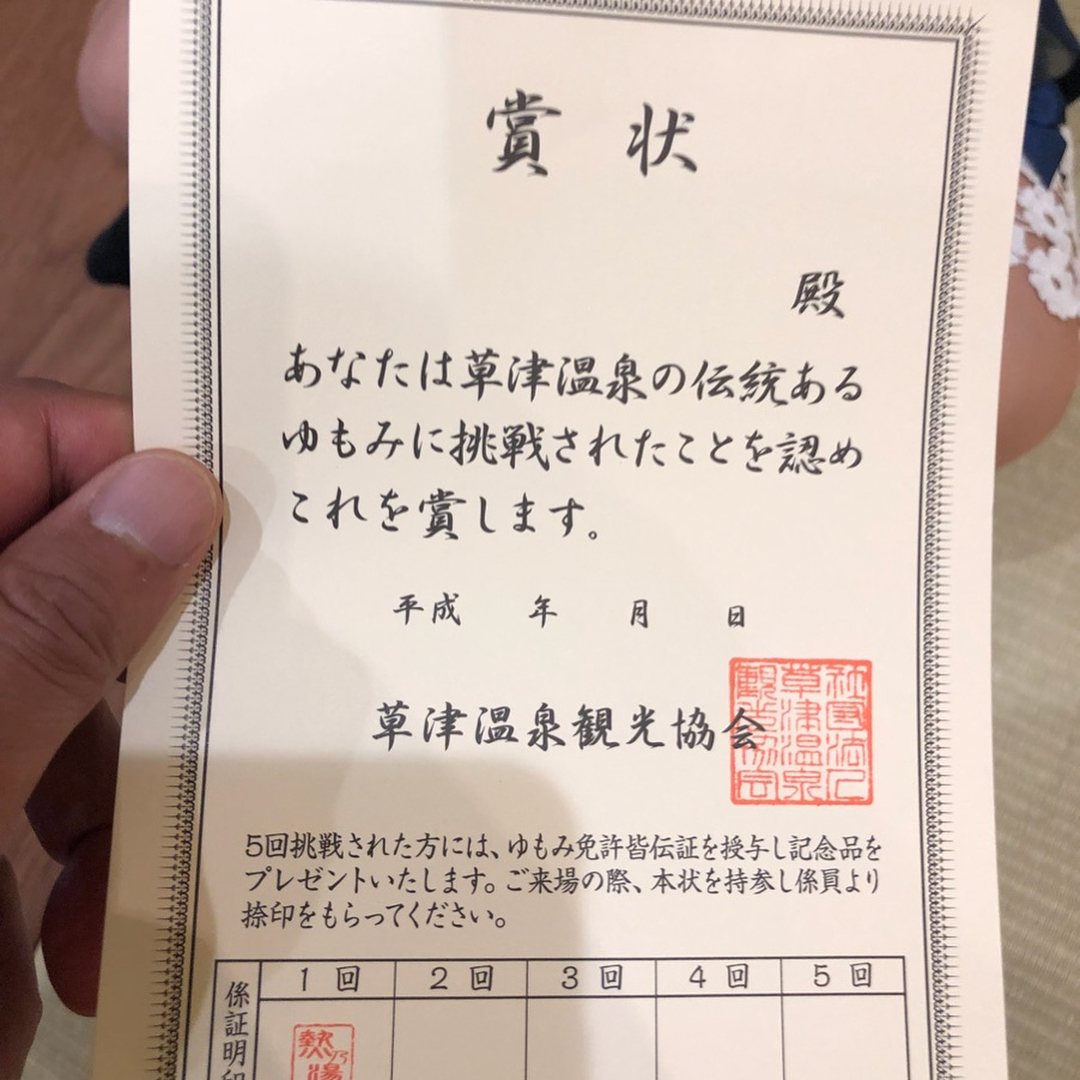 賞状
殿
あなたは草津温泉の伝統ある
ゆもみに挑戦されたことを認め
これを賞します。
平成 年 月 日
草津温泉観光協会
社団法人
草津温泉
観光協会
5回挑戦された方には、ゆもみ免許皆伝証を授与し記念品を
プレゼントいたします。ご来場の際、本状を持参し係員より
捺印をもらってください。
係証明印
1回 2回 3回 4回 5回
熱乃湯